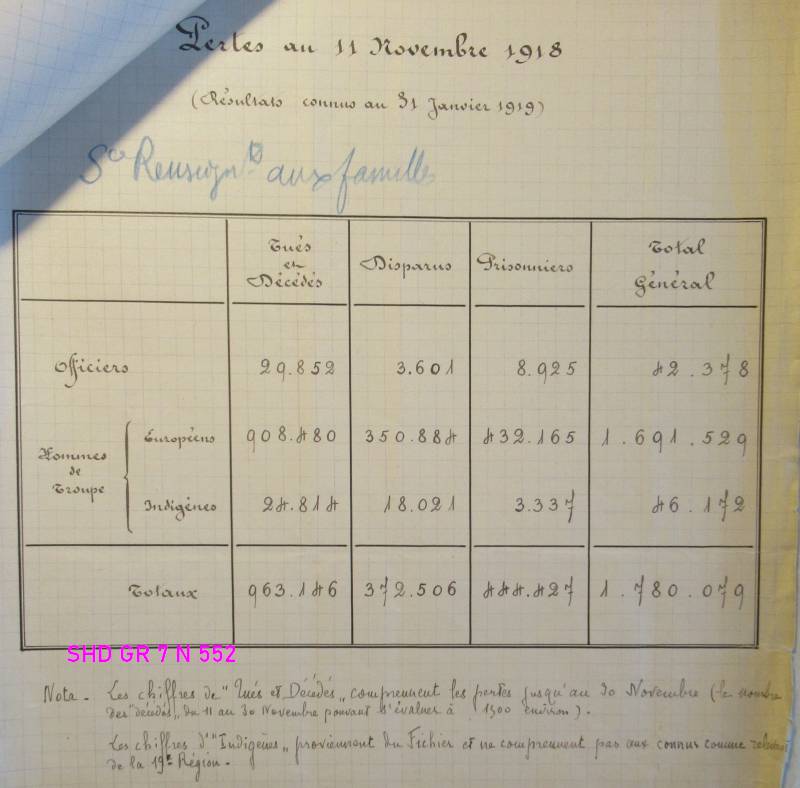 Pertes au 11 Novembre 1918
(Résultats connus au 31 Janvier 1919)
Sce Renseignts aux familles
Tués et Décédés Disparus Prisonniers Total Général
Officiers 29.852 3.601 8.925 42.378
Hommes de Troupe
Européens 908.480 350.884 432.165 1.691.529
Indigènes 24.814 18.021 3.337 46.172
Totaux 963.146 372.506 444.427 1.780.079
SHD GR 7 N 552
Nota - Les chiffres de "Tués et Décédés" comprennent les pertes jusqu'au 30 Novembre (le nombre
des "décédés" du 11 au 30 Novembre pouvant s'évaluer à 1500 environ).
Les chiffres d'"Indigènes" proviennent du Fichier et ne comprennent pas aux connus comme
de la 19e Région.